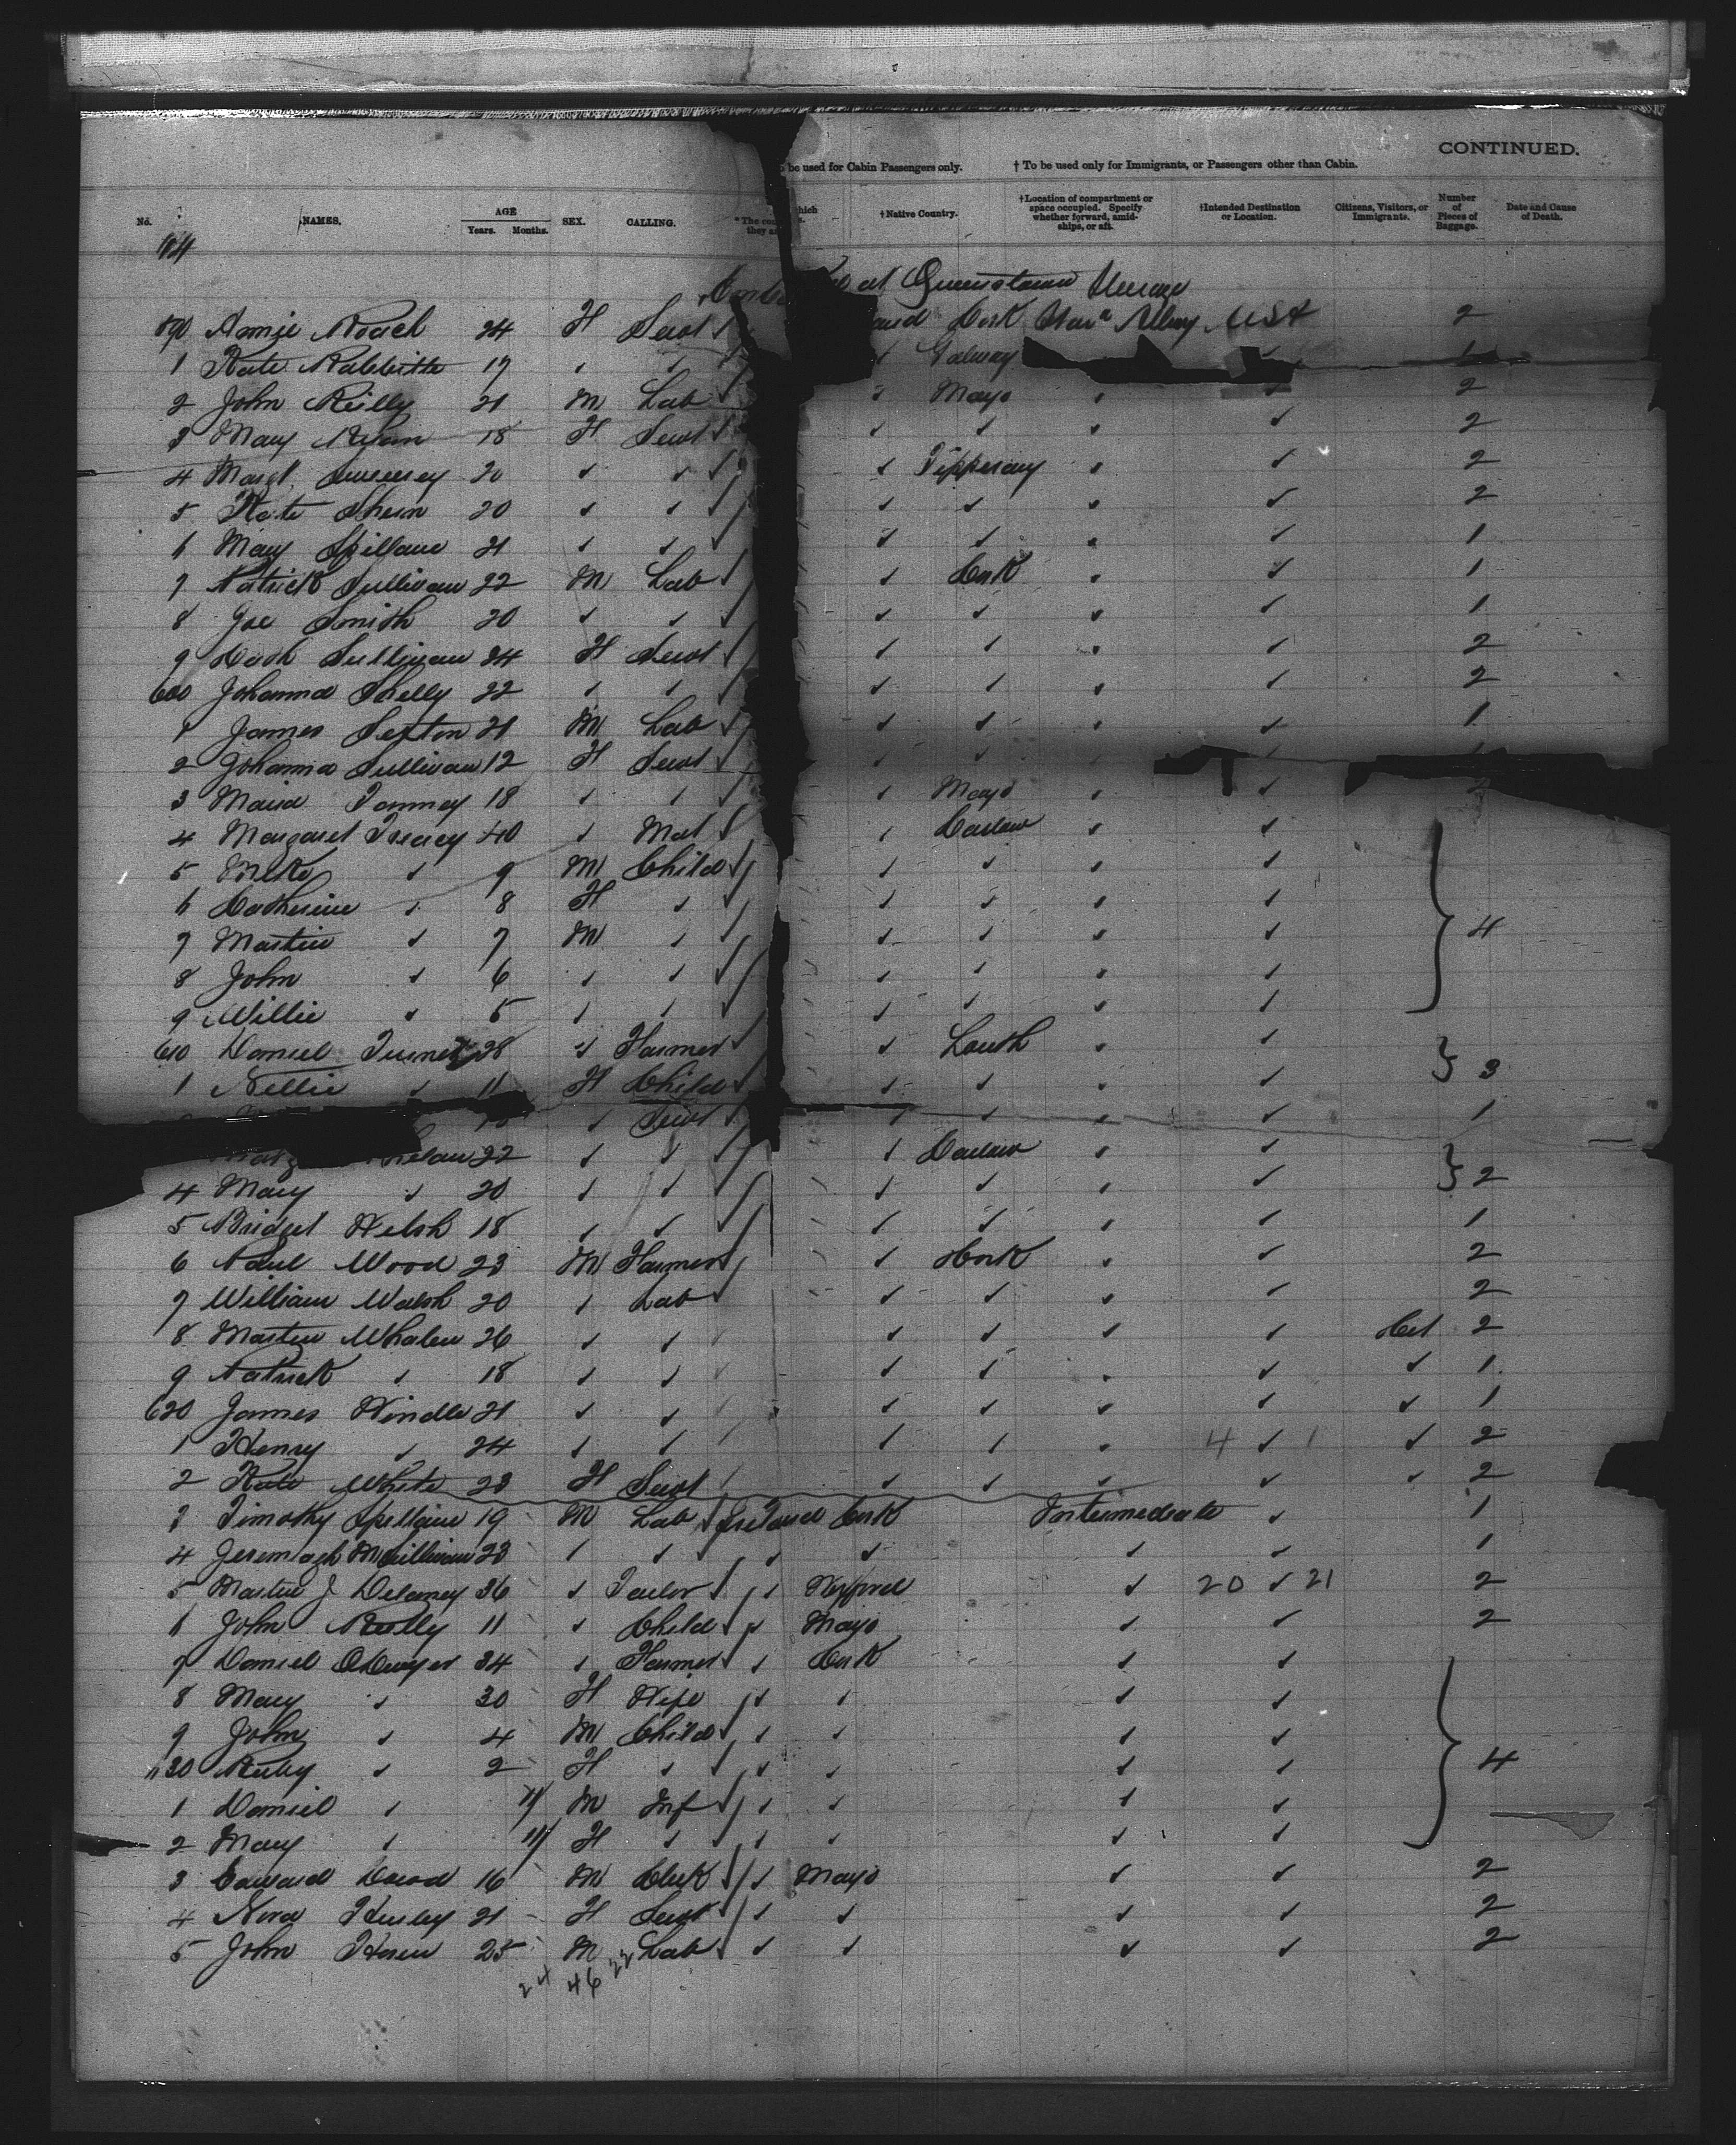 CONTINUED.
be used for Cabin Passengers only. † To be used only for Immigrants, or Passengers other than Cabin.
No. NAMES. AGE Years. Months. SEX. CALLING. * The they †Native Country. †Location of compartment or space occupied. Specify whether forward, amidships, or aft. †Intended Destination or Location. Citizens, Visitors, or Immigrants. Number of Pieces of Baggage. Date and Cause of Death.
at Queenstown Steerage
590 Annie Roach 24 F Servt Cork USA 2
1 Kate Rabbitte 19 ✓ ✓ ✓ Galway
2 John Reilly 21 M Lab ✓ Mayo ✓ ✓ 2
3 Mary 18 F Servt ✓ ✓ ✓ ✓ 2
4 Margt. Sweeney 20 ✓ ✓ ✓ Tipperary ✓ ✓ 2
5 Kate 20 ✓ ✓ ✓ ✓ ✓ ✓ 2
6 Mary Spillane 21 ✓ ✓ ✓ ✓ ✓ ✓ 1
7 Patrick Sullivan 22 M Lab ✓ Cork ✓ ✓ 1
8 Joe Smith 20 ✓ ✓ ✓ ✓ ✓ ✓ 1
9 Sullivan 24 F Servt ✓ ✓ ✓ ✓ 2
600 Johanna Shelly 22 ✓ ✓ ✓ ✓ ✓ ✓ 2
1 James Sexton 21 M Lab ✓ ✓ ✓ ✓ 1
2 Johanna Sullivan 12 F Servt ✓ ✓
3 Maria 18 ✓ ✓ ✓ Mayo ✓ ✓ 2
4 Margaret Treacy 40 ✓ Mat ✓ Carlow ✓ ✓
5 ✓ 9 M Child ✓ ✓ ✓ ✓
6 Catherine ✓ 8 F ✓ ✓ ✓ ✓ ✓
7 Martin ✓ 7 M ✓ ✓ ✓ ✓ ✓ 4
8 John ✓ 6 ✓ ✓ ✓ ✓ ✓ ✓
9 Willie ✓ 5 ✓ ✓ ✓ ✓ ✓ ✓
610 Daniel 28 ✓ Farmer ✓ Louth ✓ ✓
1 Nellie ✓ 11 F Child ✓ ✓ ✓ ✓ 3
✓ Servt ✓ ✓ ✓ ✓ 1
22 ✓ ✓ ✓ Carlow ✓ ✓
4 Mary ✓ 20 ✓ ✓ ✓ ✓ ✓ ✓ 2
5 Bridget Welsh 18 ✓ ✓ ✓ ✓ ✓ ✓ 1
6 Paul Wood 23 M Farmer ✓ Cork ✓ ✓ 2
7 William Walsh 20 ✓ Lab ✓ ✓ ✓ ✓ 2
8 Martin Whalen 26 ✓ ✓ ✓ ✓ ✓ ✓ 2
9 Patrick ✓ 18 ✓ ✓ ✓ ✓ ✓ ✓ ✓ 1
620 James Windle 21 ✓ ✓ ✓ ✓ ✓ ✓ ✓ 1
1 Henry ✓ 24 ✓ ✓ ✓ ✓ ✓ 4 ✓ 1 ✓ 2
2 Kate White 23 F Servt ✓ ✓ ✓ ✓ ✓ 2
3 Timothy Spillane 19 M Lab Ireland Cork Intermediate ✓ 1
4 Jeremiah 23 ✓ ✓ ✓ ✓ ✓ ✓ 1
5 Martin J Delaney 36 ✓ Tailor ✓ Wexford ✓ 20 ✓ 21 2
6 John Reilly 11 ✓ Child ✓ Mayo ✓ ✓ 2
7 Daniel ODwyer 34 ✓ Farmer ✓ Cork ✓ ✓
8 Mary ✓ 30 F Wife ✓ ✓ ✓ ✓
9 John ✓ 4 M Child ✓ ✓ ✓ ✓
630 Ruby ✓ 2 F ✓ ✓ ✓ ✓ ✓ 4
1 Daniel ✓ 11 M Inf ✓ ✓ ✓ ✓
2 Mary ✓ 11 F ✓ ✓ ✓ ✓ ✓
3 Edward 16 M Clerk ✓ Mayo ✓ ✓ 2
4 Nora 21 F Servt ✓ ✓ ✓ ✓ 2
5 John 25 M Lab ✓ ✓ ✓ ✓ 2
24 46 22